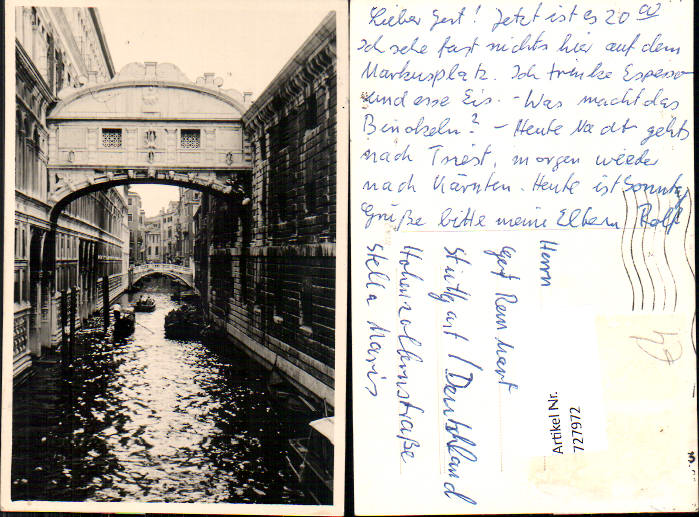 Lieber Gert! Jetzt ist es 20 00
Ich sehe fast nichts hier auf dem
Markusplatz. Ich trinke Espesso
und esse Eis. - Was macht das
Binokeln? - Heute Nacht gehts
nach Triest, morgen wieder
nach Kärnten. Heute ist Sonntag
Grüße bitte meine Eltern Rolf
Herrn
Gert
Stuttgart / Deutschland
Hohenzollernstraße
Stella Maris
Artikel Nr.
727972